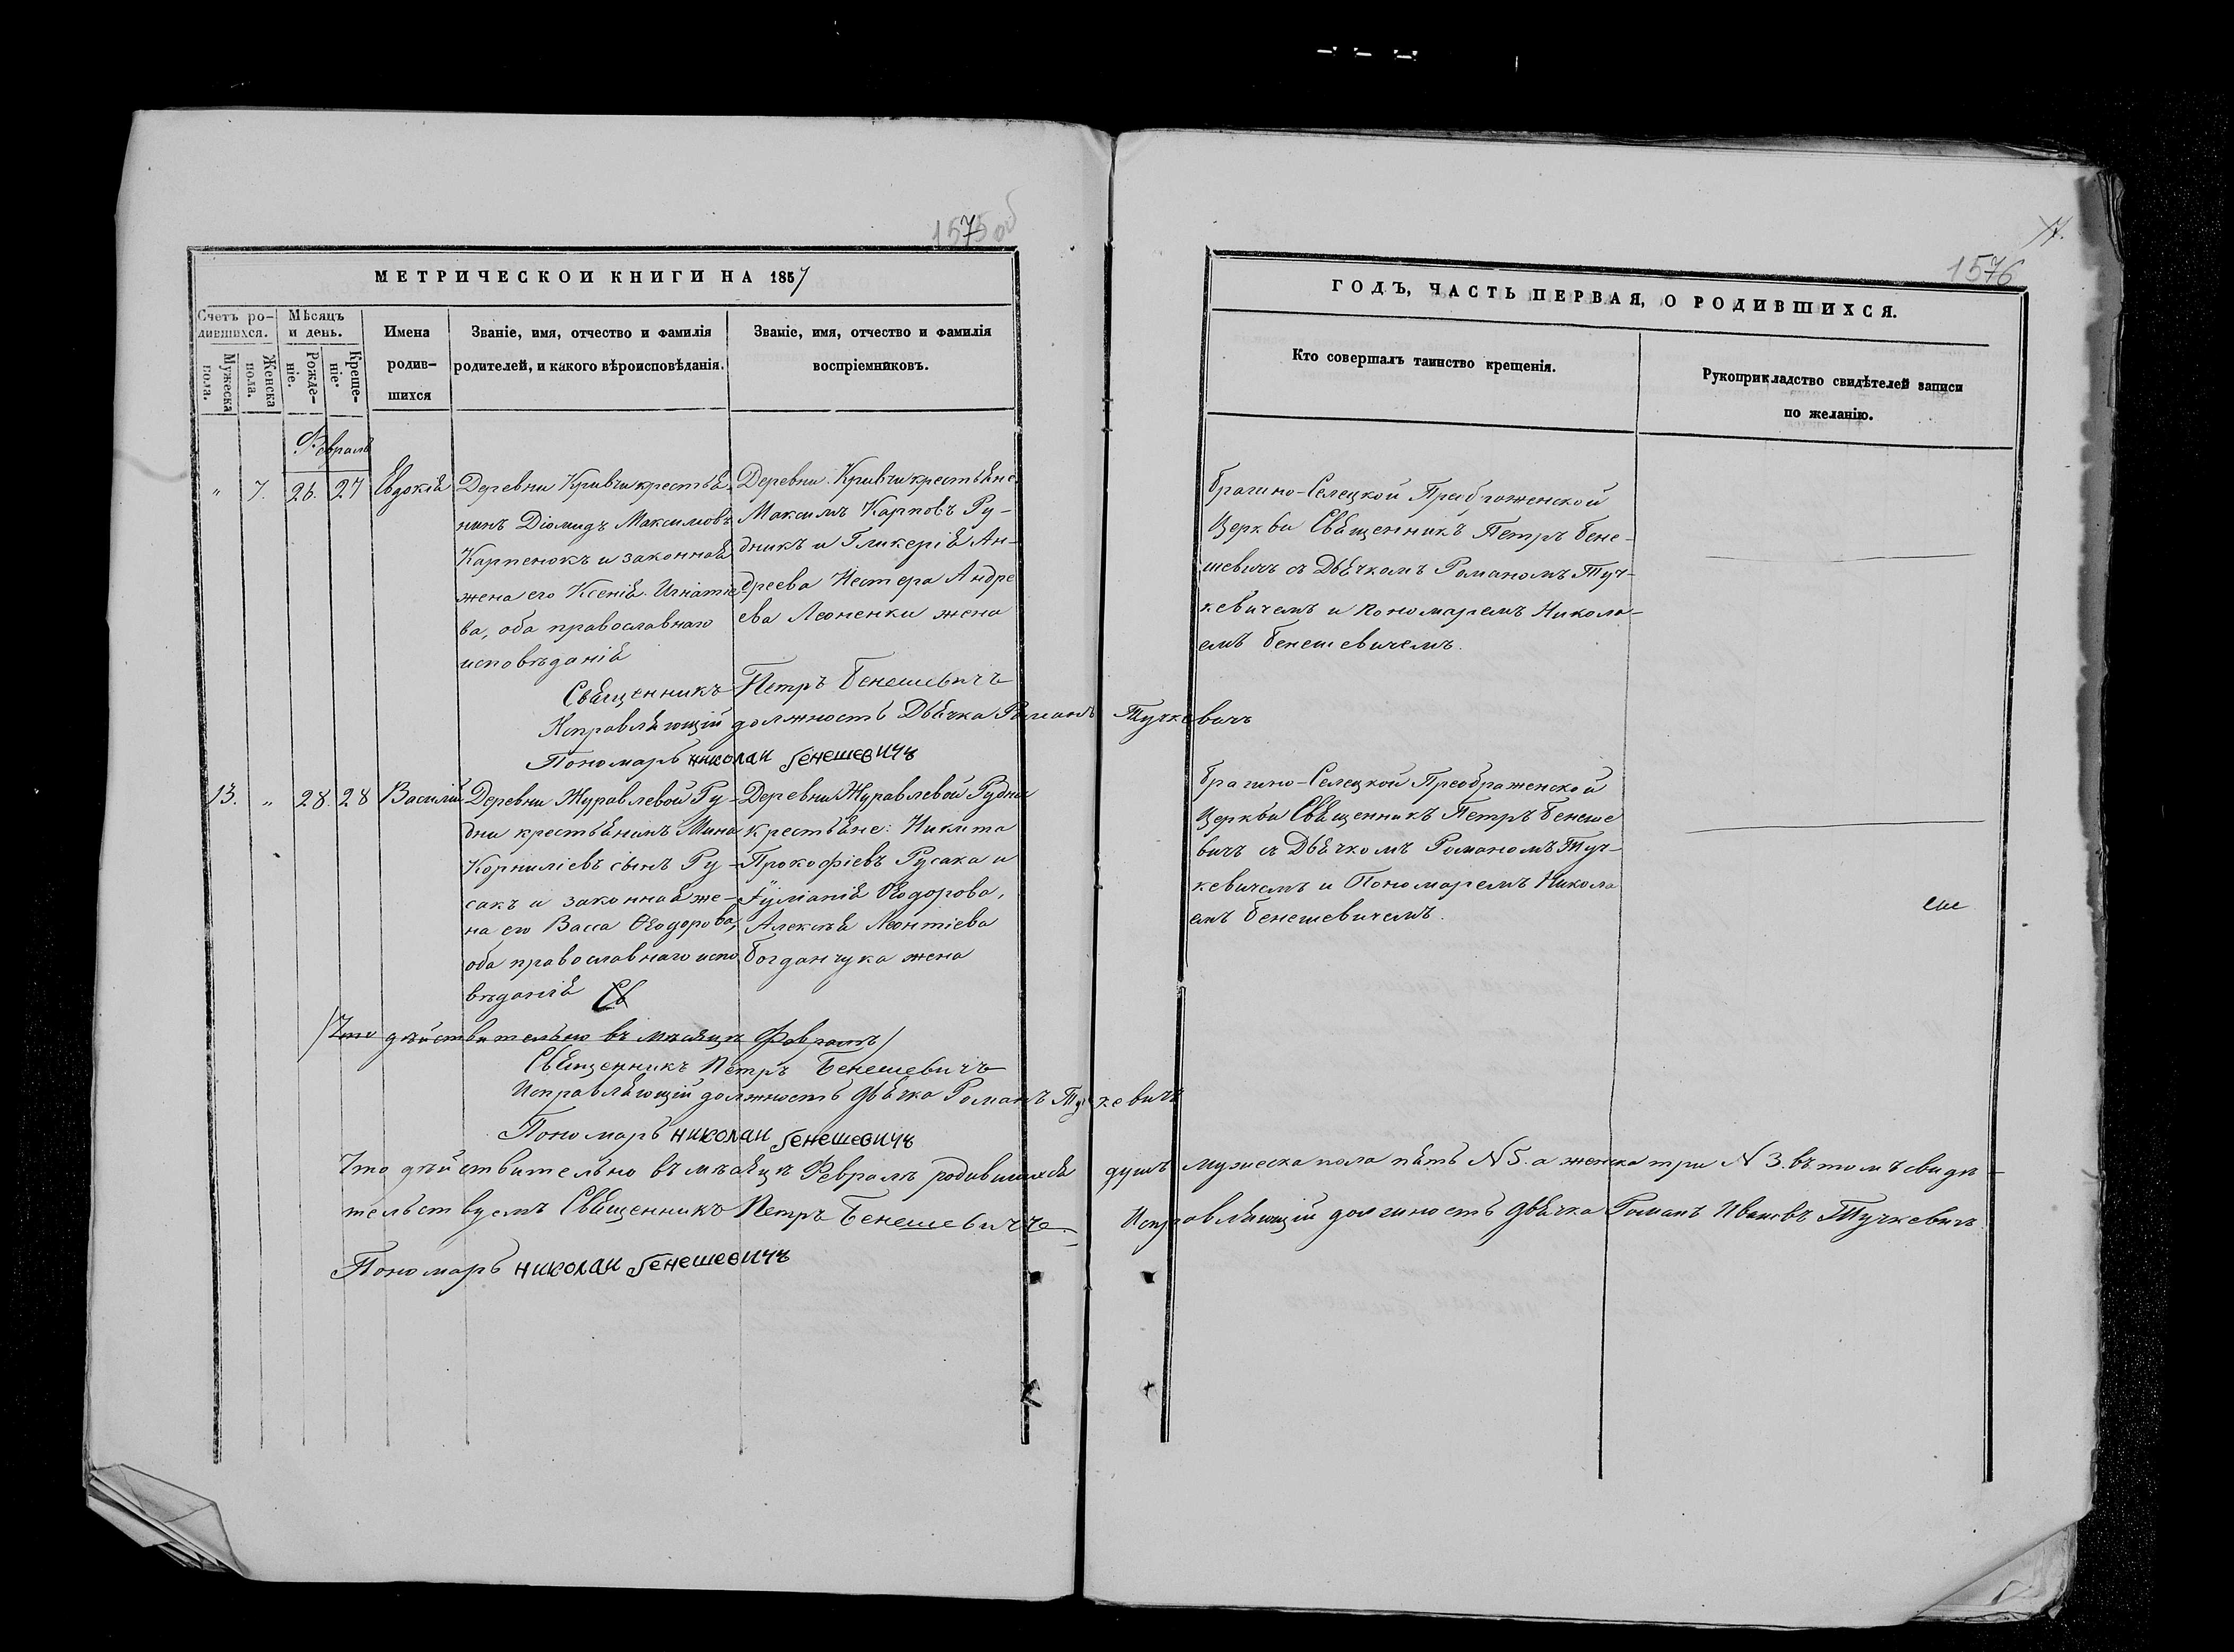 1575 об
МЕТРИЧЕСКОИ КНИГИ НА 1857
Счетъ ро-
дившихся.
Мѣсяцъ
и день.
Мужеска
пола.
Женска
пола.
Рожде-
ніе.
Креще-
ніе.
Имена
родив-
шихся
Званіе, имя, отчество и фамилія
родителей, и какого вѣроисповѣданія.
Званіе, имя, отчество и фамилія
воспріемниковъ.
Февраль
" 7. 26. 27 Евдокія
Деревни Кривчи крестья-
нинъ Діомидъ Максимовъ
Карпенокъ и законная
жена его Ксенія Игнатіе
ва, оба православнаго
исповѣданія
Деревни Кривчи крестьяне
Максимъ Карповъ Ру-
дникъ и Гликерія Ан-
дреева Нестера Андре
ева Леоненки жена
Священникъ Петръ Бенешевичъ
Исправляющій должность Дьячка Романъ Тучкевичъ
Пономарь николаи Бенешевичъ
13. " 28. 28 Василій
Деревни Журавлевой Ру-
дни крестьянинъ Мина
Корниліевъ сынъ Ру-
сакъ и законная же-
на его Васса Ѳеодорова,
оба православнаго испо
вѣданія Св
Деревни Журавлевой Рудни
крестьяне: Никита
Прокофіевъ Русака и
Ѳеодорова,
Алексѣя Леонтіева
Богданчука жена
Что дѣйствительно въ мѣсяцѣ Февралѣ
Священникъ Петръ Бенешевичъ
Исправляющій должность Дьячка Романъ Тучкевичъ
Пономарь николаи Бенешевичъ
Что дѣйствительно въ мѣсяцѣ Февралѣ родившихся душъ мужеска пола пять N 5. а женска три N 3. въ томъ свидѣ-
тельствуемъ Священникъ Петръ Бенешевичъ Исправляющій должность Дьячка Романъ Ивановъ Тучкевичъ
Пономарь николаи Бенешевичъ
1576
ГОДЪ, ЧАСТЬ ПЕРВАЯ, О РОДИВШИХСЯ.
Кто совершалъ таинство крещенія.
Рукоприкладство свидѣтелей записи
по желанію.
Брагино-Селецкой Преображенской
Церкви Священникъ Петръ Бене-
шевичъ съ Дьячкомъ Романомъ Туч-
кевичемъ и пономаремъ Никола-
емъ Бенешевичемъ.
Брагино-Селецкой Преображенской
Церкви Священникъ Петръ Бенеше
вичъ съ Дьячкомъ Романомъ Туч-
кевичемъ и Пономаремъ Никола
емъ Бенешевичемъ.